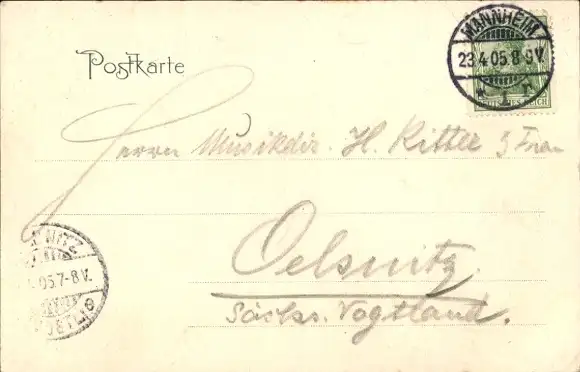 Postkarte
MANNHEIM
23.4.05.8-9V.
* 1 r
DEUTSCHES REICH
Herrn Musikdir. H. Ritter & Frau
Oelsnitz
Sächs. Vogtland.
NITZ
05.7-8V.